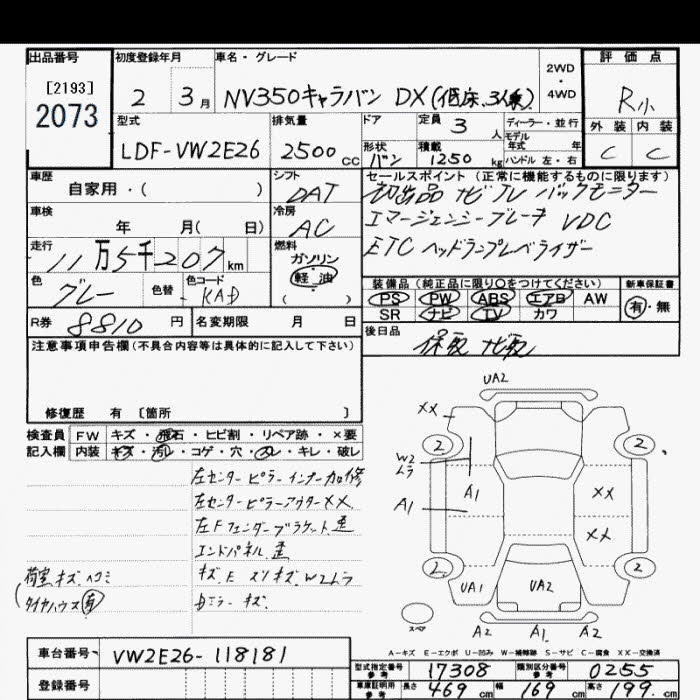 出品番号 初度登録年月 車名・グレード 2WD・4WD 評価点
[2193]
2073
2 3月 NV350キャラバン DX(低床、3人乗) R小
型式 排気量 ドア 定員 3人 ディーラー・並行 外装 内装
モデル年式 年
LDF-VW2E26 2500cc 形状 バン 積載 1250kg ハンドル 左・右 C C
車歴 自家用・( ) シフト DAT
セールスポイント(正常に機能するものに限ります)
初出品 ナビTV バックモニター
エマージェンシーブレーキ VDC
ETC ヘッドランプレベライザー
車検 年 月( 日) 冷房 AC
走行 11万5千207km 燃料 ガソリン・軽油 ( )
色 グレー 色替 色コード KAD
装備品(純正品に限り○をつけてください) 新車保証書
PS PW ABS エアB AW 有・無
SR ナビ TV カワ
R券 8810円 名変期限 月 日
後日品 保取 ナビ取
注意事項申告欄(不具合内容等は具体的に記入して下さい)
修復歴 有 〔箇所 〕
検査員 FW キズ・飛石・ヒビ割・リペア跡・×要
記入欄 内装 キズ・汚レ・コゲ・穴・スレ・キレ・破レ
左センターピラーインナー加修
左センターピラーアウターXX
左Fフェンダーブラケット歪
エンドパネル歪
荷室キズ ヘコミ キズ E スリキズ W2ムラ
(タイヤハウス有 Dミラーキズ
UA2
XX
2 2
W2ムラ
A1 A1 XX
XX
2 2
UA1 UA2
スペア A2 A1 A2
A−キズ E−エクボ U−凹み W−補修跡 S−サビ C−腐食 XX−交換済
車台番号 VW2E26-118181
登録番号
型式指定番号 参考 17308 類別区分番号 参考 0255
車庫証明用 参考 長さ 469cm 幅 169cm 高さ 199cm